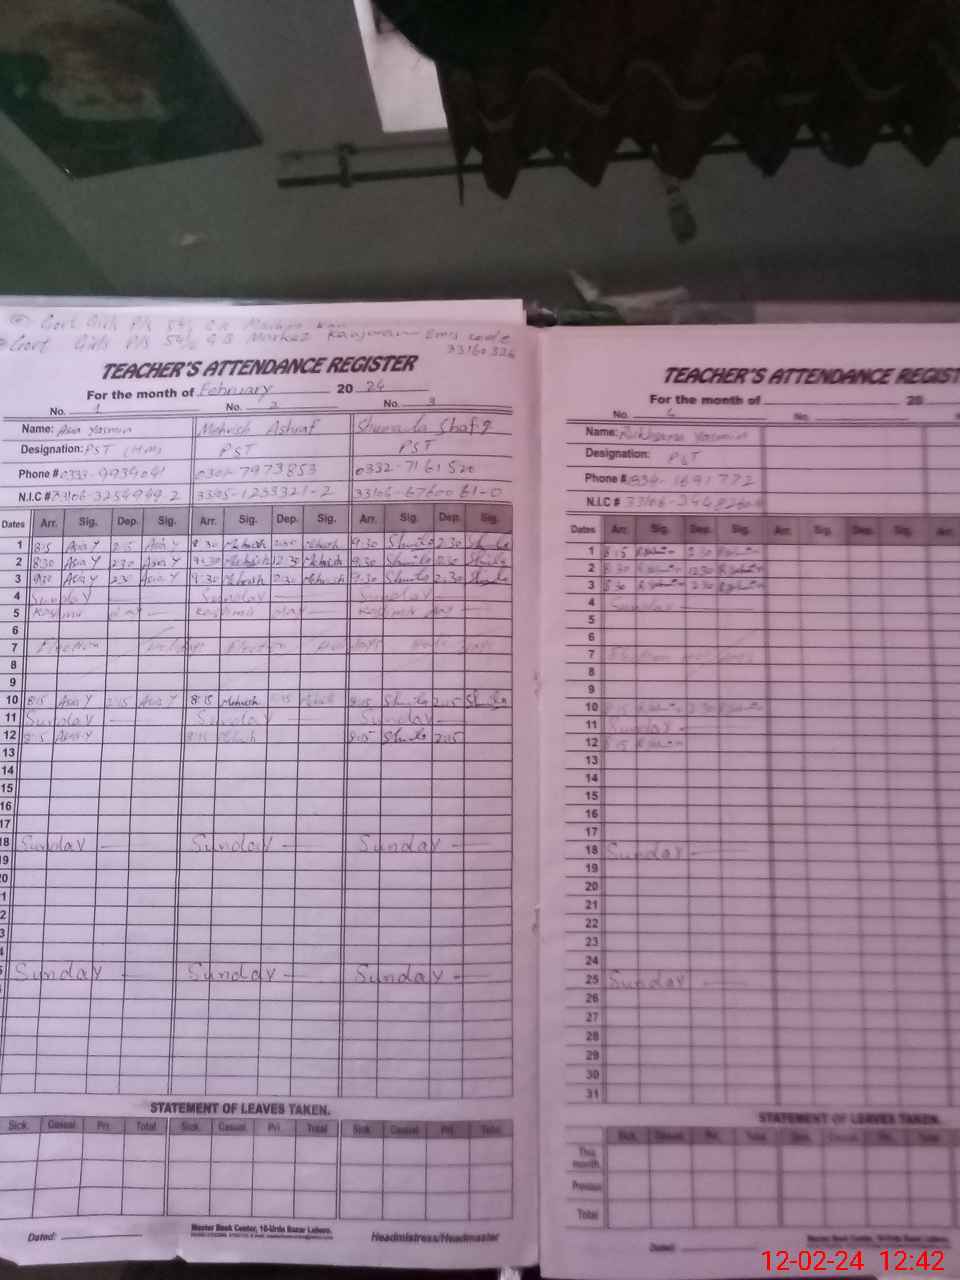 Govt Girls P/S
Govt Girls P/S 54/6 GB Markaz Kanjwani Emis code
33160336
TEACHER'S ATTENDANCE REGISTER
For the month of February 20 24
No. 1 No. 2 No. 3
Name: Asia Yasmin Mehvish Ashraf Shumaila Shafq
Designation: PST (HM) PST PST
Phone # 0333-9939041 0301-7973853 0332-7161520
N.I.C # 33106-3254949-2 33105-1233321-2 33106-6760061-0
Dates Arr. Sig. Dep. Sig. Arr. Sig. Dep. Sig. Arr. Sig. Dep. Sig.
1 8:15 Asia Y 2:15 Asia Y 8:30 Mehvish 2:30 Mehvish 9:30 Shumila 2:30 Shumila
2 8:30 Asia Y 12:30 Asia Y 9:30 Mehvish 12:30 Mehvish 9:30 Shumila 12:30 Shumila
3 9:30 Asia Y 2:30 Asia Y 9:30 Mehvish 2:30 Mehvish 9:30 Shumila 2:30 Shumila
4 Sunday — Sunday — Sunday —
5 Kashmir Day — Kashmir Day — Kashmir Day —
6
7 Election Holidays Election Holidays
8
9
10 8:15 Asia Y 2:15 Asia Y 8:15 Mehvish 2:15 Mehvish 8:15 Shumila 2:15 Shumila
11 Sunday — Sunday — Sunday —
12 8:15 Asia Y 8:15 Mehvish 8:15 Shumila 2:15
13
14
15
16
17
18 Sunday — Sunday — Sunday —
19
20
Sunday — Sunday — Sunday —
STATEMENT OF LEAVES TAKEN.
Sick. Casual. Pri. Total Sick. Casual. Pri. Total Sick. Casual. Pri. Total.
Master Book Center, 10-Urdu Bazar Lahore.
Dated: Headmistress/Headmaster
TEACHER'S ATTENDANCE REGIST
For the month of 20
No. 4 No.
Name: Rukhsana Yasmin
Designation: PST
Phone #
N.I.C #
Dates Arr. Sig. Dep. Sig. Arr. Sig. Dep. Sig. Arr.
1 8:15 2:30
2 8:30 12:30
3 8:30 2:30
4 Sunday —
5
6
7 Election
8
9
10 8:15 2:30
11 Sunday —
12 8:15
13
14
15
16
17
18 Sunday —
19
20
21
22
23
24
25 Sunday —
26
27
28
29
30
31
STATEMENT OF LEAVES TAKEN.
Sick. Casual. Pri. Total Sick. Casual. Pri. Total
This month.
Previous
Total
Dated: Master Book Center, 10-Urdu Bazar Lahore.
12-02-24 12:42